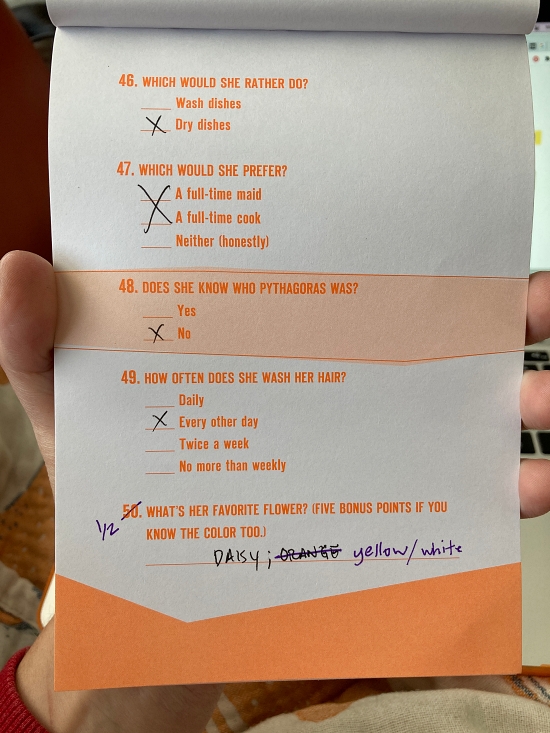 46. WHICH WOULD SHE RATHER DO?
____ Wash dishes
X Dry dishes
47. WHICH WOULD SHE PREFER?
X A full-time maid
A full-time cook
____ Neither (honestly)
48. DOES SHE KNOW WHO PYTHAGORAS WAS?
____ Yes
X No
49. HOW OFTEN DOES SHE WASH HER HAIR?
____ Daily
X Every other day
____ Twice a week
____ No more than weekly
1/2 50. WHAT'S HER FAVORITE FLOWER? (FIVE BONUS POINTS IF YOU
KNOW THE COLOR TOO.)
DAISY; ORANGE yellow/white